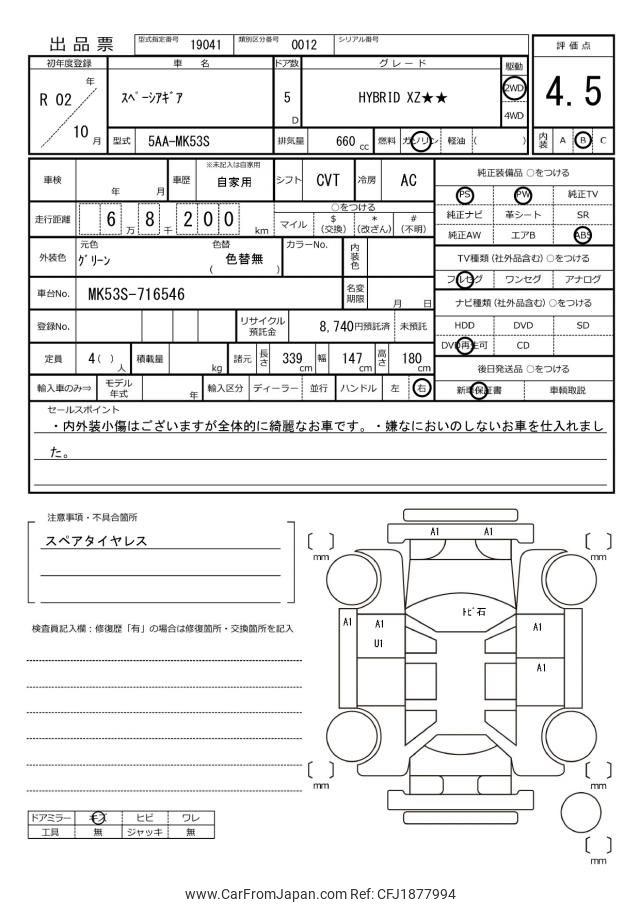 出品票 型式指定番号 19041 類別区分番号 0012 シリアル番号
初年度登録 車名 ドア数 グレード 駆動 評価点
R 02 年 ｽﾍﾟｰｼｱｷﾞｱ 5 D HYBRID XZ★★ 2WD 4.5
10 月 4WD
型式 5AA-MK53S 排気量 660 cc 燃料 ガソリン 軽油 ( ) 内装 A B C
車検 年 月 車歴 ※未記入は自家用 自家用 シフト CVT 冷房 AC
純正装備品 ○をつける
PS PW 純正TV
純正ナビ 革シート SR
純正AW エアB ABS
走行距離 6 万 8 千 200 km
○をつける
マイル $ (交換) * (改ざん) # (不明)
外装色 元色 ｸﾞﾘｰﾝ 色替 ( 色替無 ) カラーNo. 内装色
TV種類 (社外品含む) ○をつける
フルセグ ワンセグ アナログ
車台No. MK53S-716546 名変期限 月 日
ナビ種類 (社外品含む) ○をつける
HDD DVD SD
DVD再生可 CD
登録No. リサイクル預託金 8,740円預託済 未預託
定員 4 ( ) 人 積載量 kg 諸元 長さ 339 cm 幅 147 cm 高さ 180 cm
後日発送品 ○をつける
新車保証書 車輌取説
輸入車のみ⇒ モデル年式 年 輸入区分 ディーラー 並行 ハンドル 左 右
セールスポイント
・内外装小傷はございますが全体的に綺麗なお車です。・嫌なにおいのしないお車を仕入れまし
た。
注意事項・不具合箇所
スペアタイヤレス
検査員記入欄：修復歴「有」の場合は修復箇所・交換箇所を記入
A1 A1
mm mm
ﾄﾋﾞ石
A1 A1 A1
U1
A1
mm mm
mm
ドアミラー キズ ヒビ ワレ
工具 無 ジャッキ 無
www.CarFromJapan.com Ref: CFJ1877994